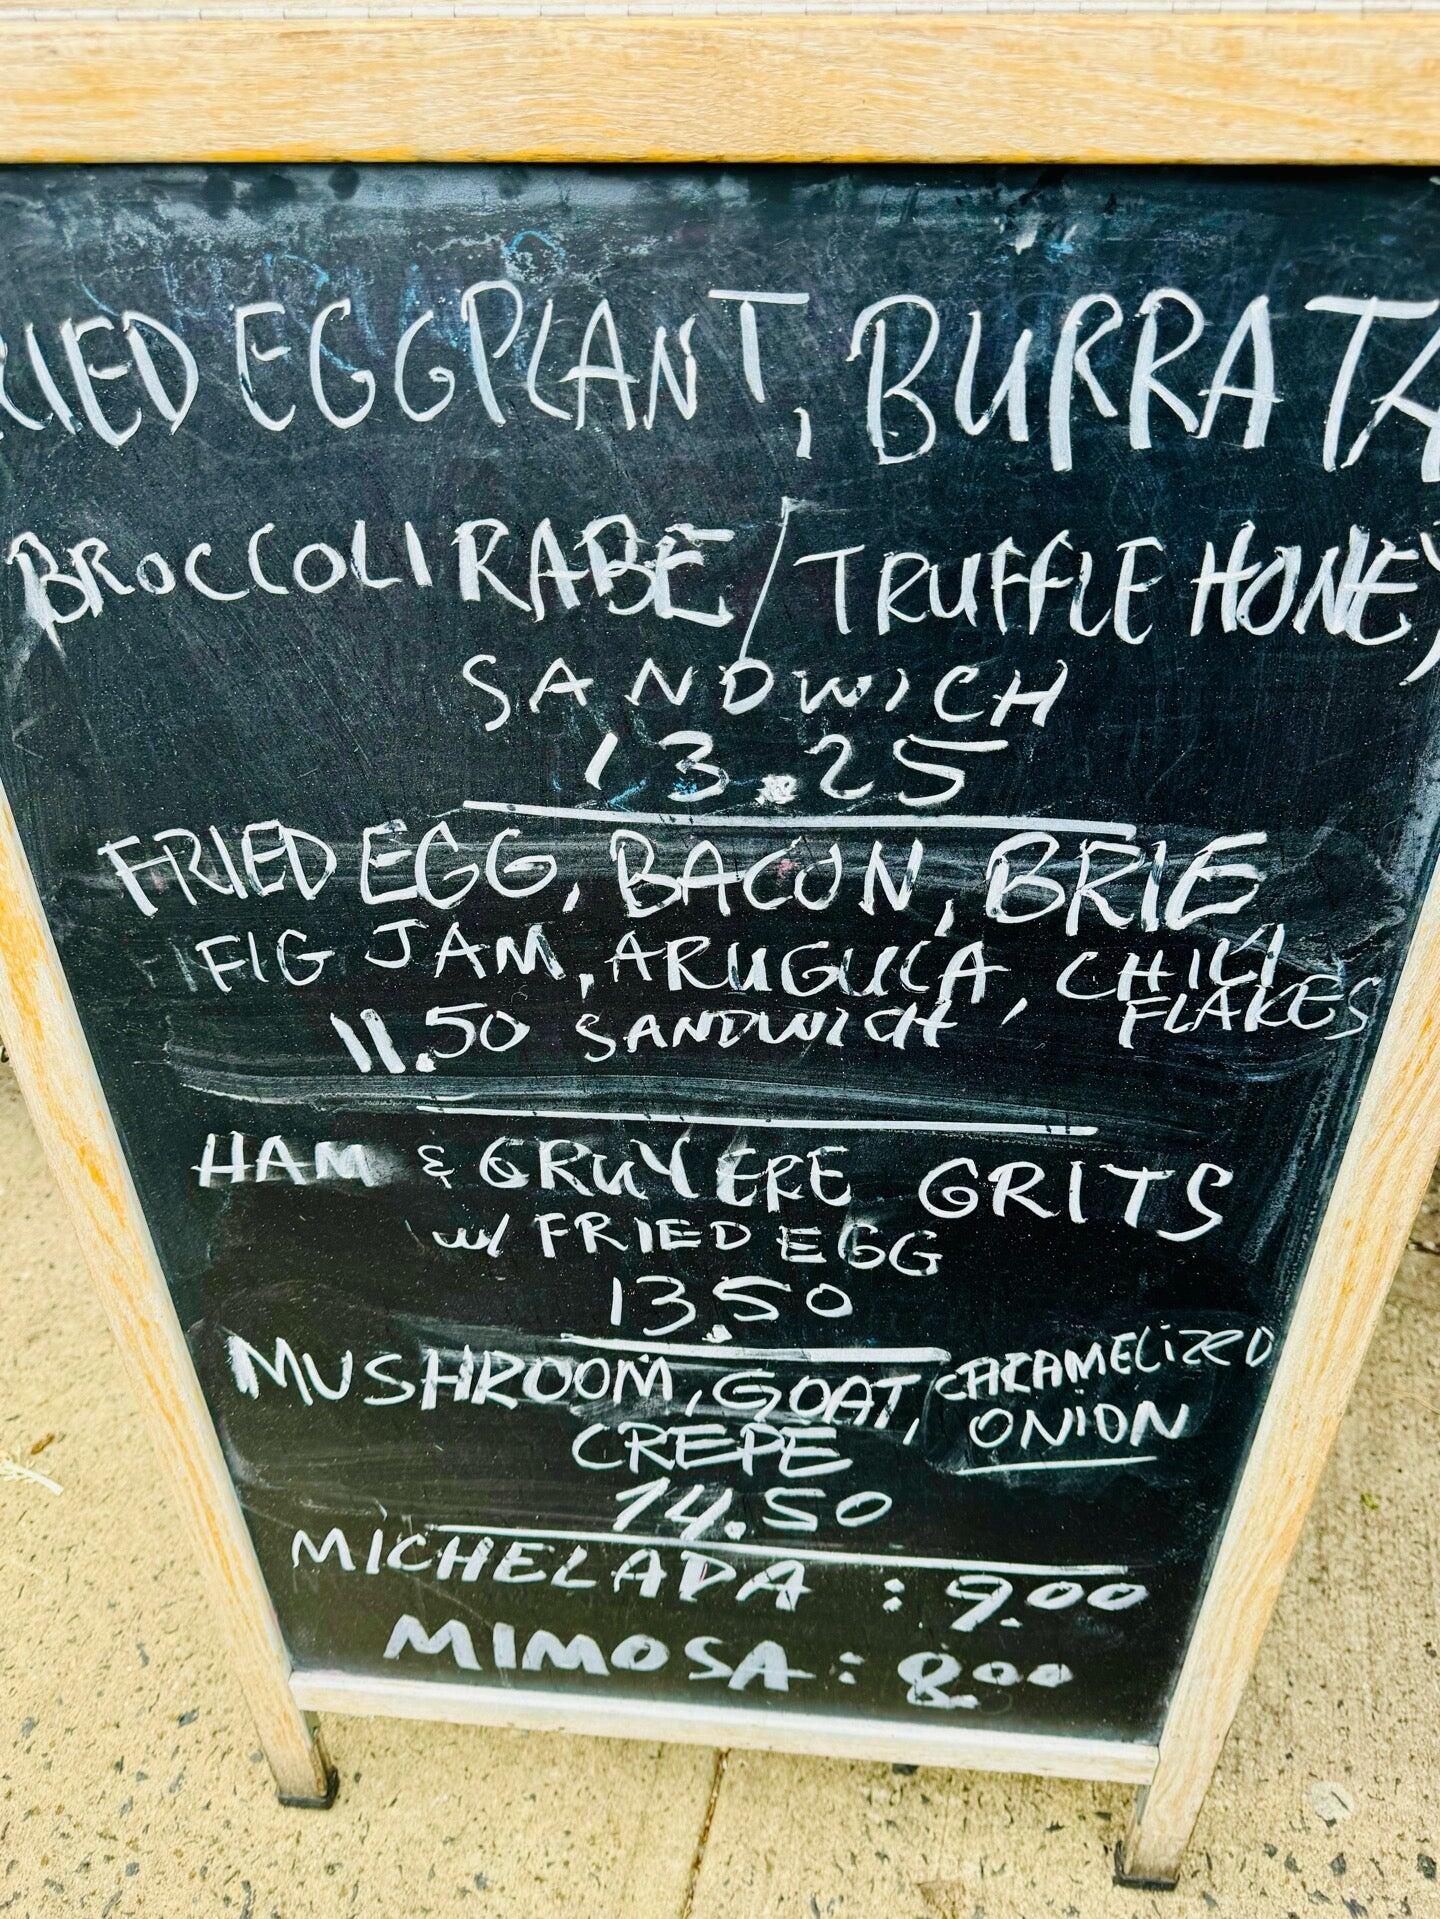 RIED EGGPLANT, BURRATA
BROCCOLI RABE / TRUFFLE HONEY
SANDWICH
13.25
FRIED EGG, BACON, BRIE
FIG JAM, ARUGULA, CHILI
FLAKES
11.50 SANDWICH
HAM & GRUYERE GRITS
w/ FRIED EGG
13.50
MUSHROOM, GOAT, CARAMELIZED
ONION
CREPE
14.50
MICHELADA : 9.00
MIMOSA : 8.00